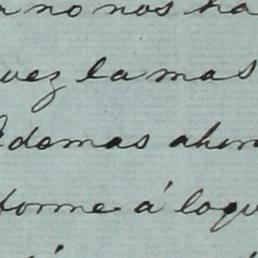 no nos ha
vez la mas
Ademas ahor
forme á loqu